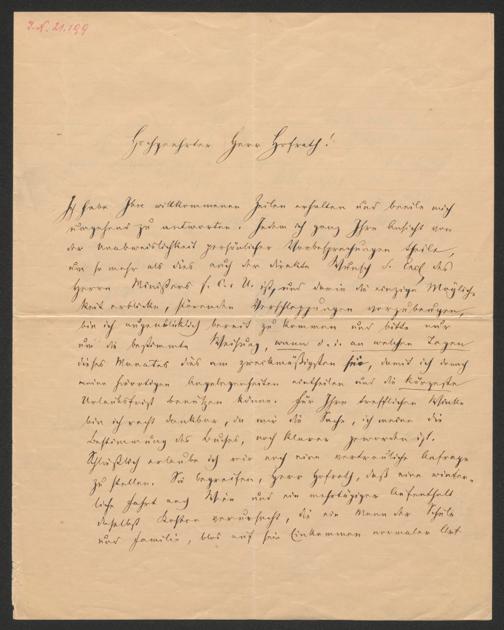 I.N. 21.199
Hochgeehrter Herr Hofrath!
Ich habe Ihre willkommenen Zeilen erhalten und beeile mich
umgehend zu antworten. Indem ich ganz Ihre Ansicht von
der Unabweislichkeit persönlicher Vorbesprechungen theile,
um so mehr als dies auch der direkte Wunsch S. Exc. des
Herrn Ministers f. C. u. U. ist, und darin die einzige Möglich-
keit erblicke, störenden Verschleppungen vorzubeugen,
bin ich augenblicklich bereit zu kommen und bitte nur
um die bestimmte Weisung, wann d. i. an welchen Tagen
dieses Monates dies am zweckmäßigsten sei, damit ich darnach
meine hierortigen Angelegenheiten eintheilen und die kürzeste
Urlaubsfrist benützen könne. Für Ihre trefflichen Winke
bin ich recht dankbar, da mir die Sache, ich meine die
Bestimmung des Buches, noch klarer geworden ist.
Schließlich erlaube ich mir noch eine vertrauliche Anfrage
zu stellen. Sie begreifen, Herr Hofrath, daß eine winter-
liche Fahrt nach Wien und ein mehrtägiger Aufenthalt
daselbst Kosten verursacht, die ein Mann der Schule
und Familie, blos auf sein Einkommen normaler Art